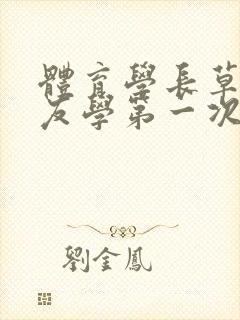 體育學長草
友學第一次
劉金鳳